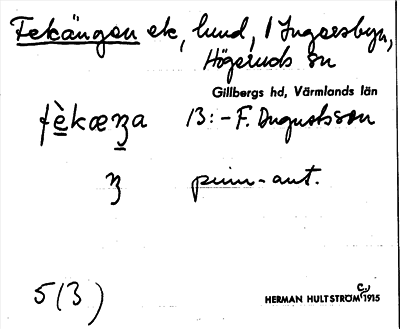 Fekängen ek, lund, i Ingersbyn,
Högeruds sn
Gillbergs hd, Värmlands län
fè̱kæŋa 13:- F. Augustsson
ŋ pinn-ant.
5(3)
HERMAN HULTSTRÖM C. 1915